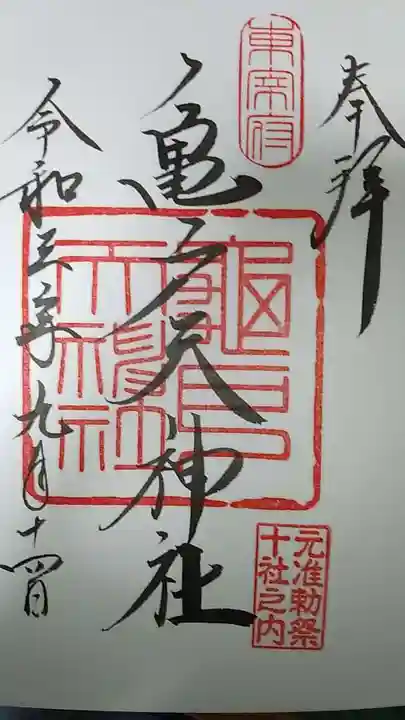 奉拝
東宰府
亀戸天神社
龜戸天神社
元准勅祭
十社之内
令和三年九月十四日